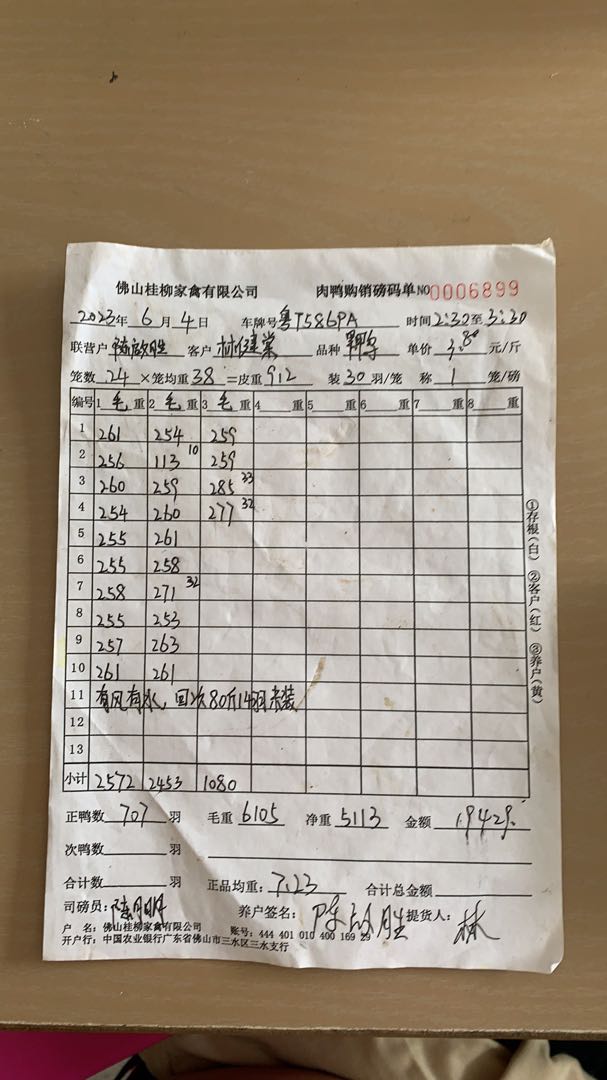 佛山桂柳家禽有限公司 肉鸭购销磅码单 NO 0006899
2023年 6月 4日 车牌号 粤T586PA 时间 2:30 至 3:30
联营户 客户 品种 单价 3.80 元/斤
笼数 24 ×笼均重 38 =皮重 912 装 30 羽/笼 称 1 笼/磅
编号 1 毛 重 2 毛 重 3 毛 重 4 重 5 重 6 重 7 重 8 重
1 261 254 259
2 256 113 10 259
3 260 259 285 33
4 254 260 277 32
5 255 261
6 255 258
7 258 271 32
8 255 253
9 257 263
10 261 261
11 有风有水, 80斤14羽未装
12
13
小计 2572 2453 1080
①存根(白) ②客户(红) ③养户(黄)
正鸭数 707 羽 毛重 6105 净重 5113 金额 19429.
次鸭数 羽
合计数 羽 正品均重: 7.23 合计总金额
司磅员: 养户签名: 提货人: 林
户 名: 佛山桂柳家禽有限公司 账号: 444 401 010 400 169 29
开户行: 中国农业银行广东省佛山市三水区三水支行